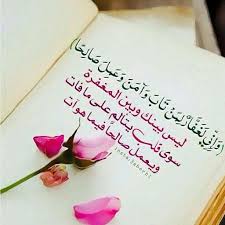 (وَإِنِّي لَغَفَّارٌ لِمَنْ تَابَ وَآمَنَ وَعَمِلَ صَالِحًا)
ليس بينك وبين المغفرة
سوى قلب يتألم على ما فات
ويعمل صالحًا فيما هو آت